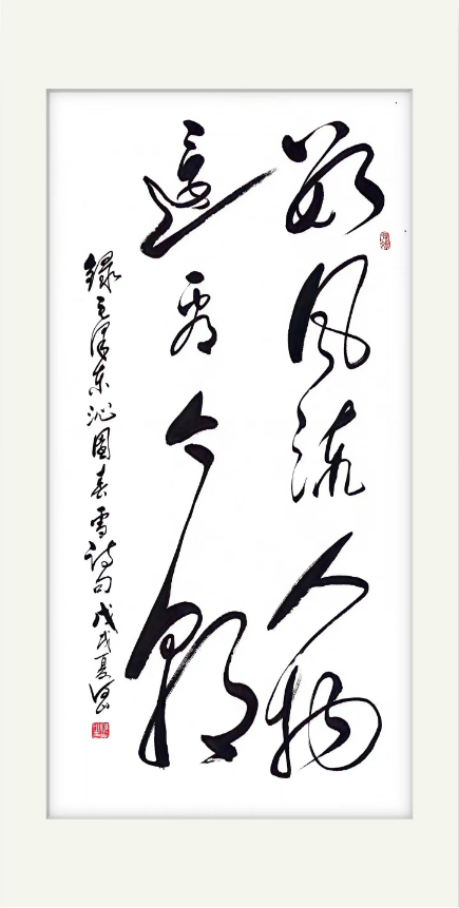 数风流人物
还看今朝
录毛泽东沁园春雪诗句戊戌夏